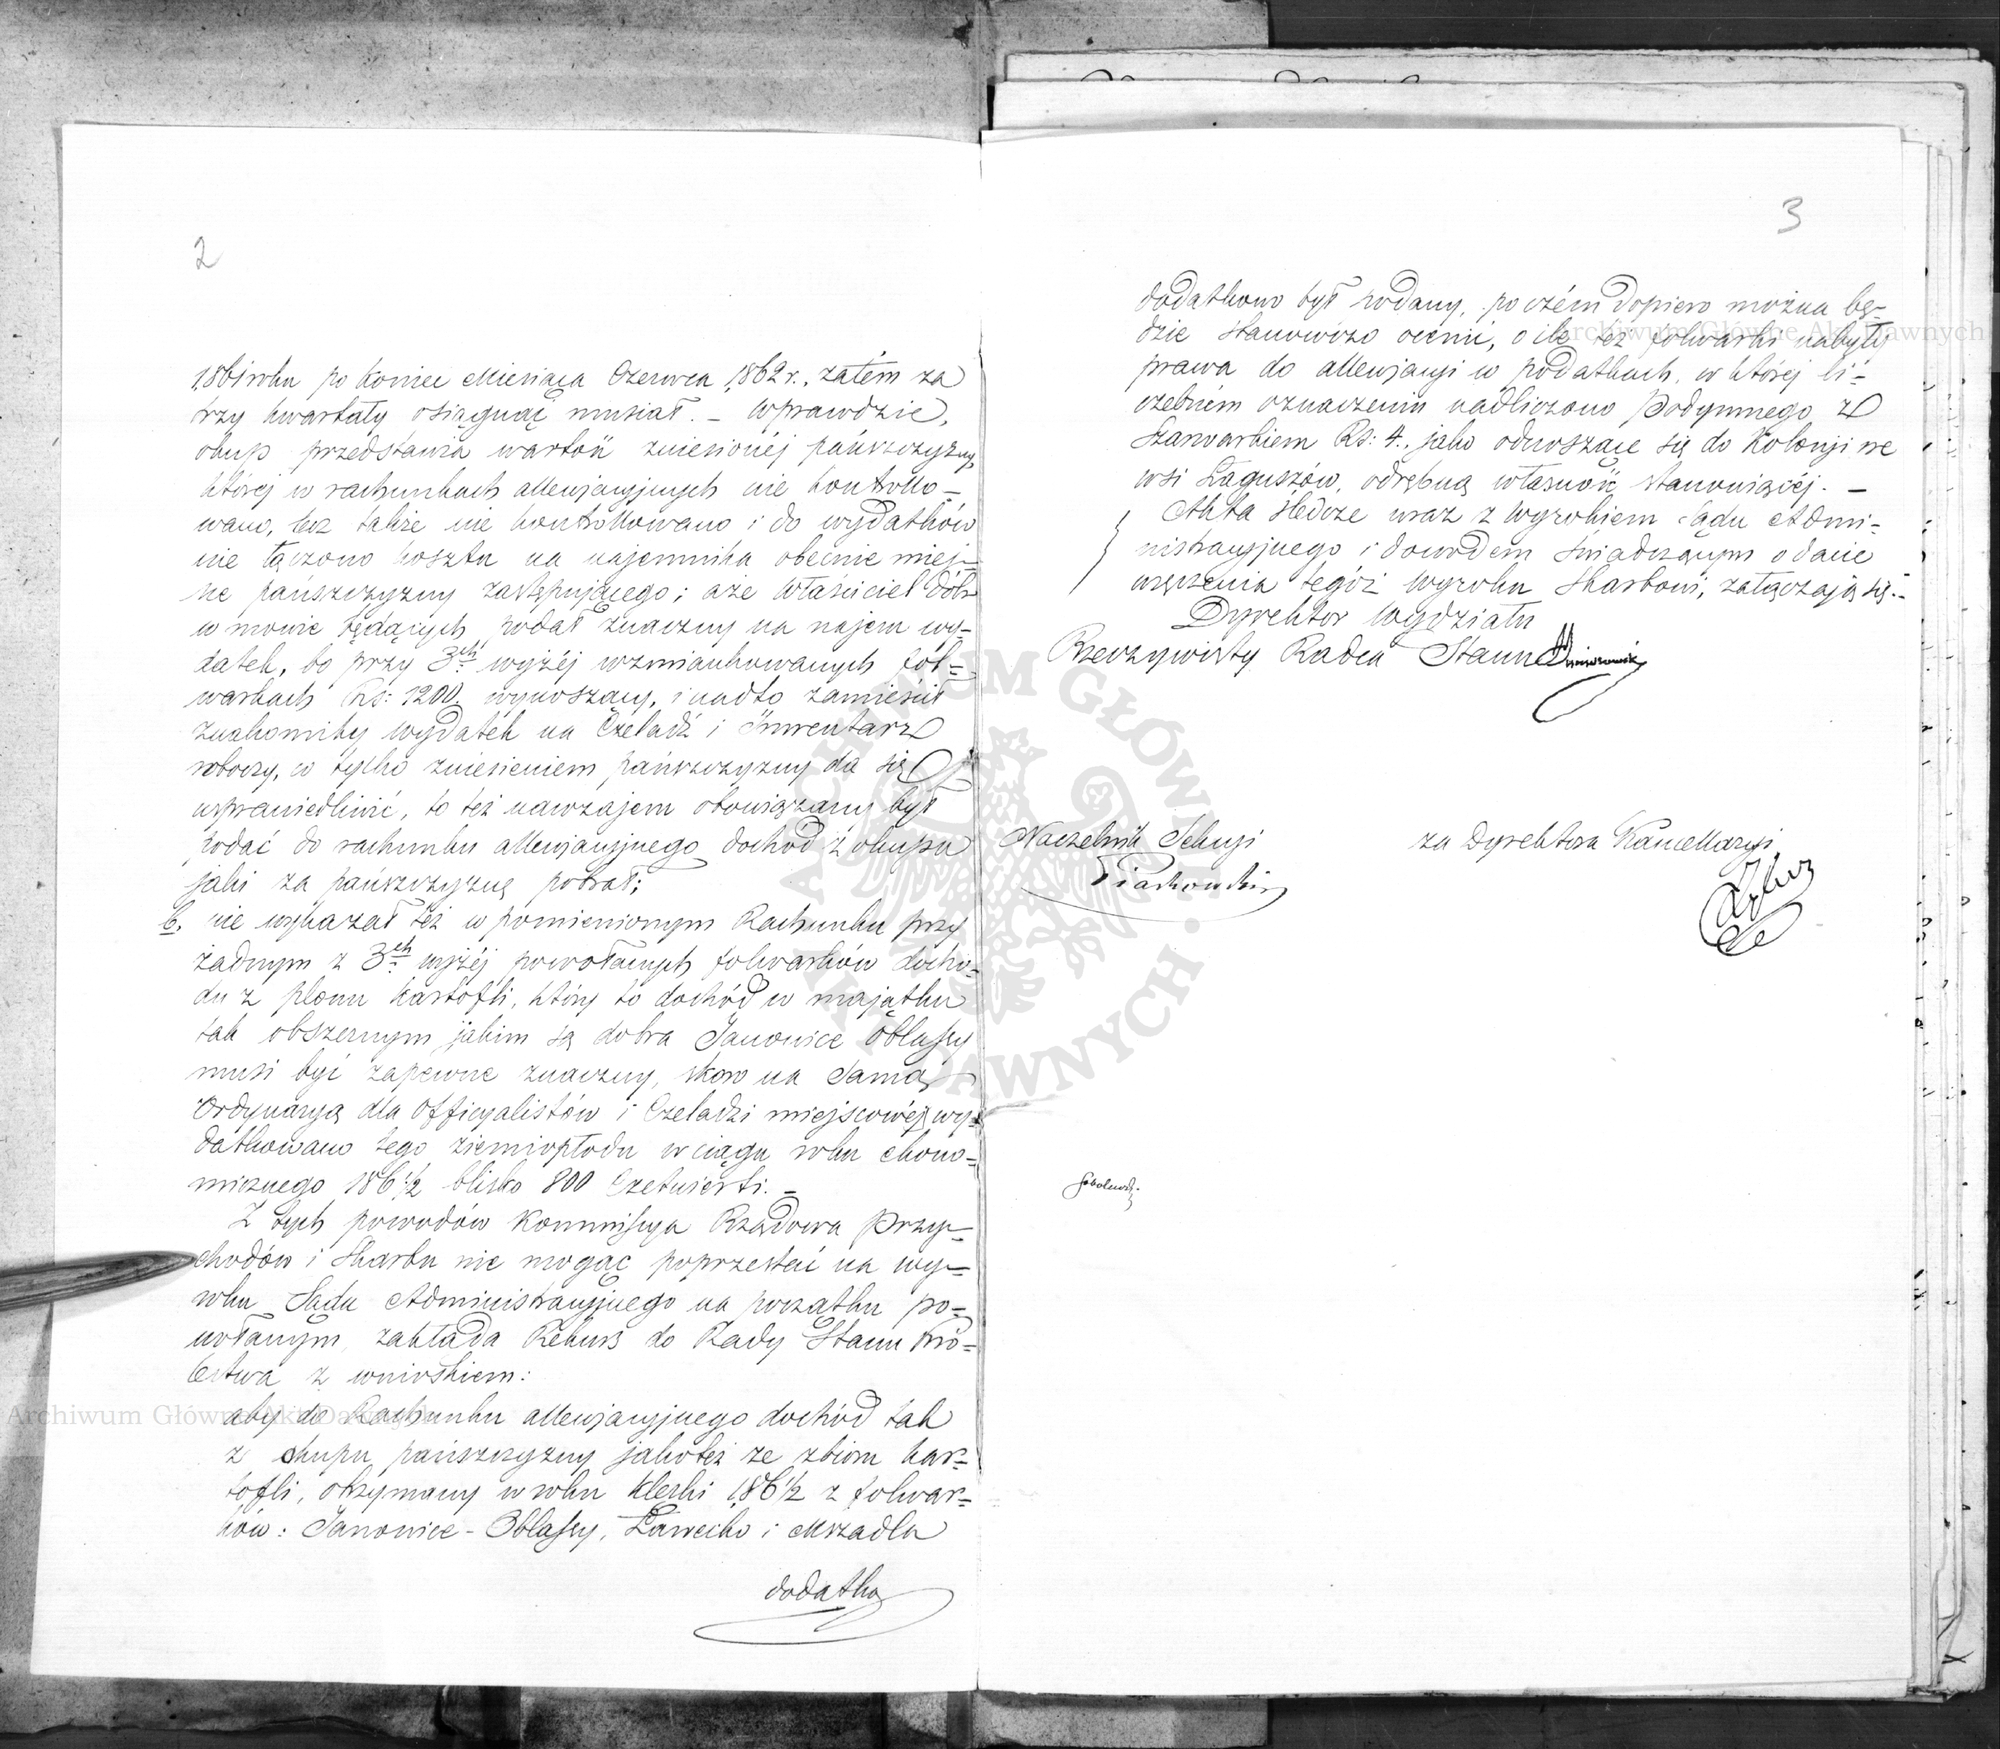 2
1861 roku po koniec Miesiąca Czerwca 1862 r., zatém za
trzy kwartały osiągnąć musiał. – Wprawdzie,
okup przedstawia wartość zniesionéj pańszczyzny,
któréj w rachunkach allewjacyjnych nie kontrollo=
wano, lecz także nie kontrollowano i do wydatków
nie łączono kosztu na najemnika obecnie miej=
sce pańszczyzny zastępującego; aże Właściciel Dóbr
w mowie będących podał znaczny na najem wy=
datek, bo przy 3ch wyżéj wzmiankowanych fol=
warkach Rs: 1200 wynoszący, i nadto zamieścił
znakomity wydatek na Czeladź i Inwentarz
roboczy, co tylko zniesieniem pańszczyzny da się
usprawiedliwić, to też nawzajem obowiązany był
podać do rachunku allewjacyjnego dochód z okupu
jaki za pańszczyznę pobrał;
b. nie wykazał też w pomienionym Rachunku przy
żadnym z 3ch wyżéj powołanych folwarków docho=
du z plonu kartofli, który to dochód w majątku
tak obszernym jakim są dobra Janowice Oblassy
musi być zapewne znaczny, skoro na samą
Ordynaryą dla Officyalistów i Czeladzi miejscowéj wy=
datkowano tego ziemiopłodu w ciągu roku ekono=
micznego 186½ blisko 800 Czetwierti. –
Z tych powodów Kommissya Rządowa Przy=
chodów i Skarbu nie mogąc poprzestać na wy=
roku Sądu Administracyjnego na początku po=
wołanym, zakłada Rekurs do Rady Stanu Kró=
lestwa z wnioskiem:
aby do Rachunku allewjacyjnego dochód tak
z okupu pańszczyzny jakoteż ze zbioru kar=
tofli, otrzymany w roku klęski 186½ z folwar=
ków: Janowice-Oblassy, Ławecko i Mszadla
dodatko
3
dodatkowo był podany, poczém dopiero można bę=
dzie stanowczo ocenić, o ile téż folwarki nabyły
prawa do allewjacyi w podatkach, w któréj li=
czebném oznaczeniu nadliczono Podymnego z
Szarwarkiem Rs: 4., jako odnoszące się do Kolonji we
wsi Łaguszów, odrębną własność stanowiącéj. –
Akta śledcze wraz z wyrokiem Sądu Admi=
nistracyjnego i dowodem świadczącym o dacie
wręczenia tegóż wyroku Skarbowi, załączają się. –
Dyrektor Wydziału
Rzeczywisty Radca Stanu
Naczelnik Sekcyi
Piaskowski
za Dyrektora Kancellaryi
Sobolewski.
Archiwum Główne Akt Dawnych
Archiwum Główne Akt Dawnych
ARCHIWUM GŁÓWNE AKT DAWNYCH